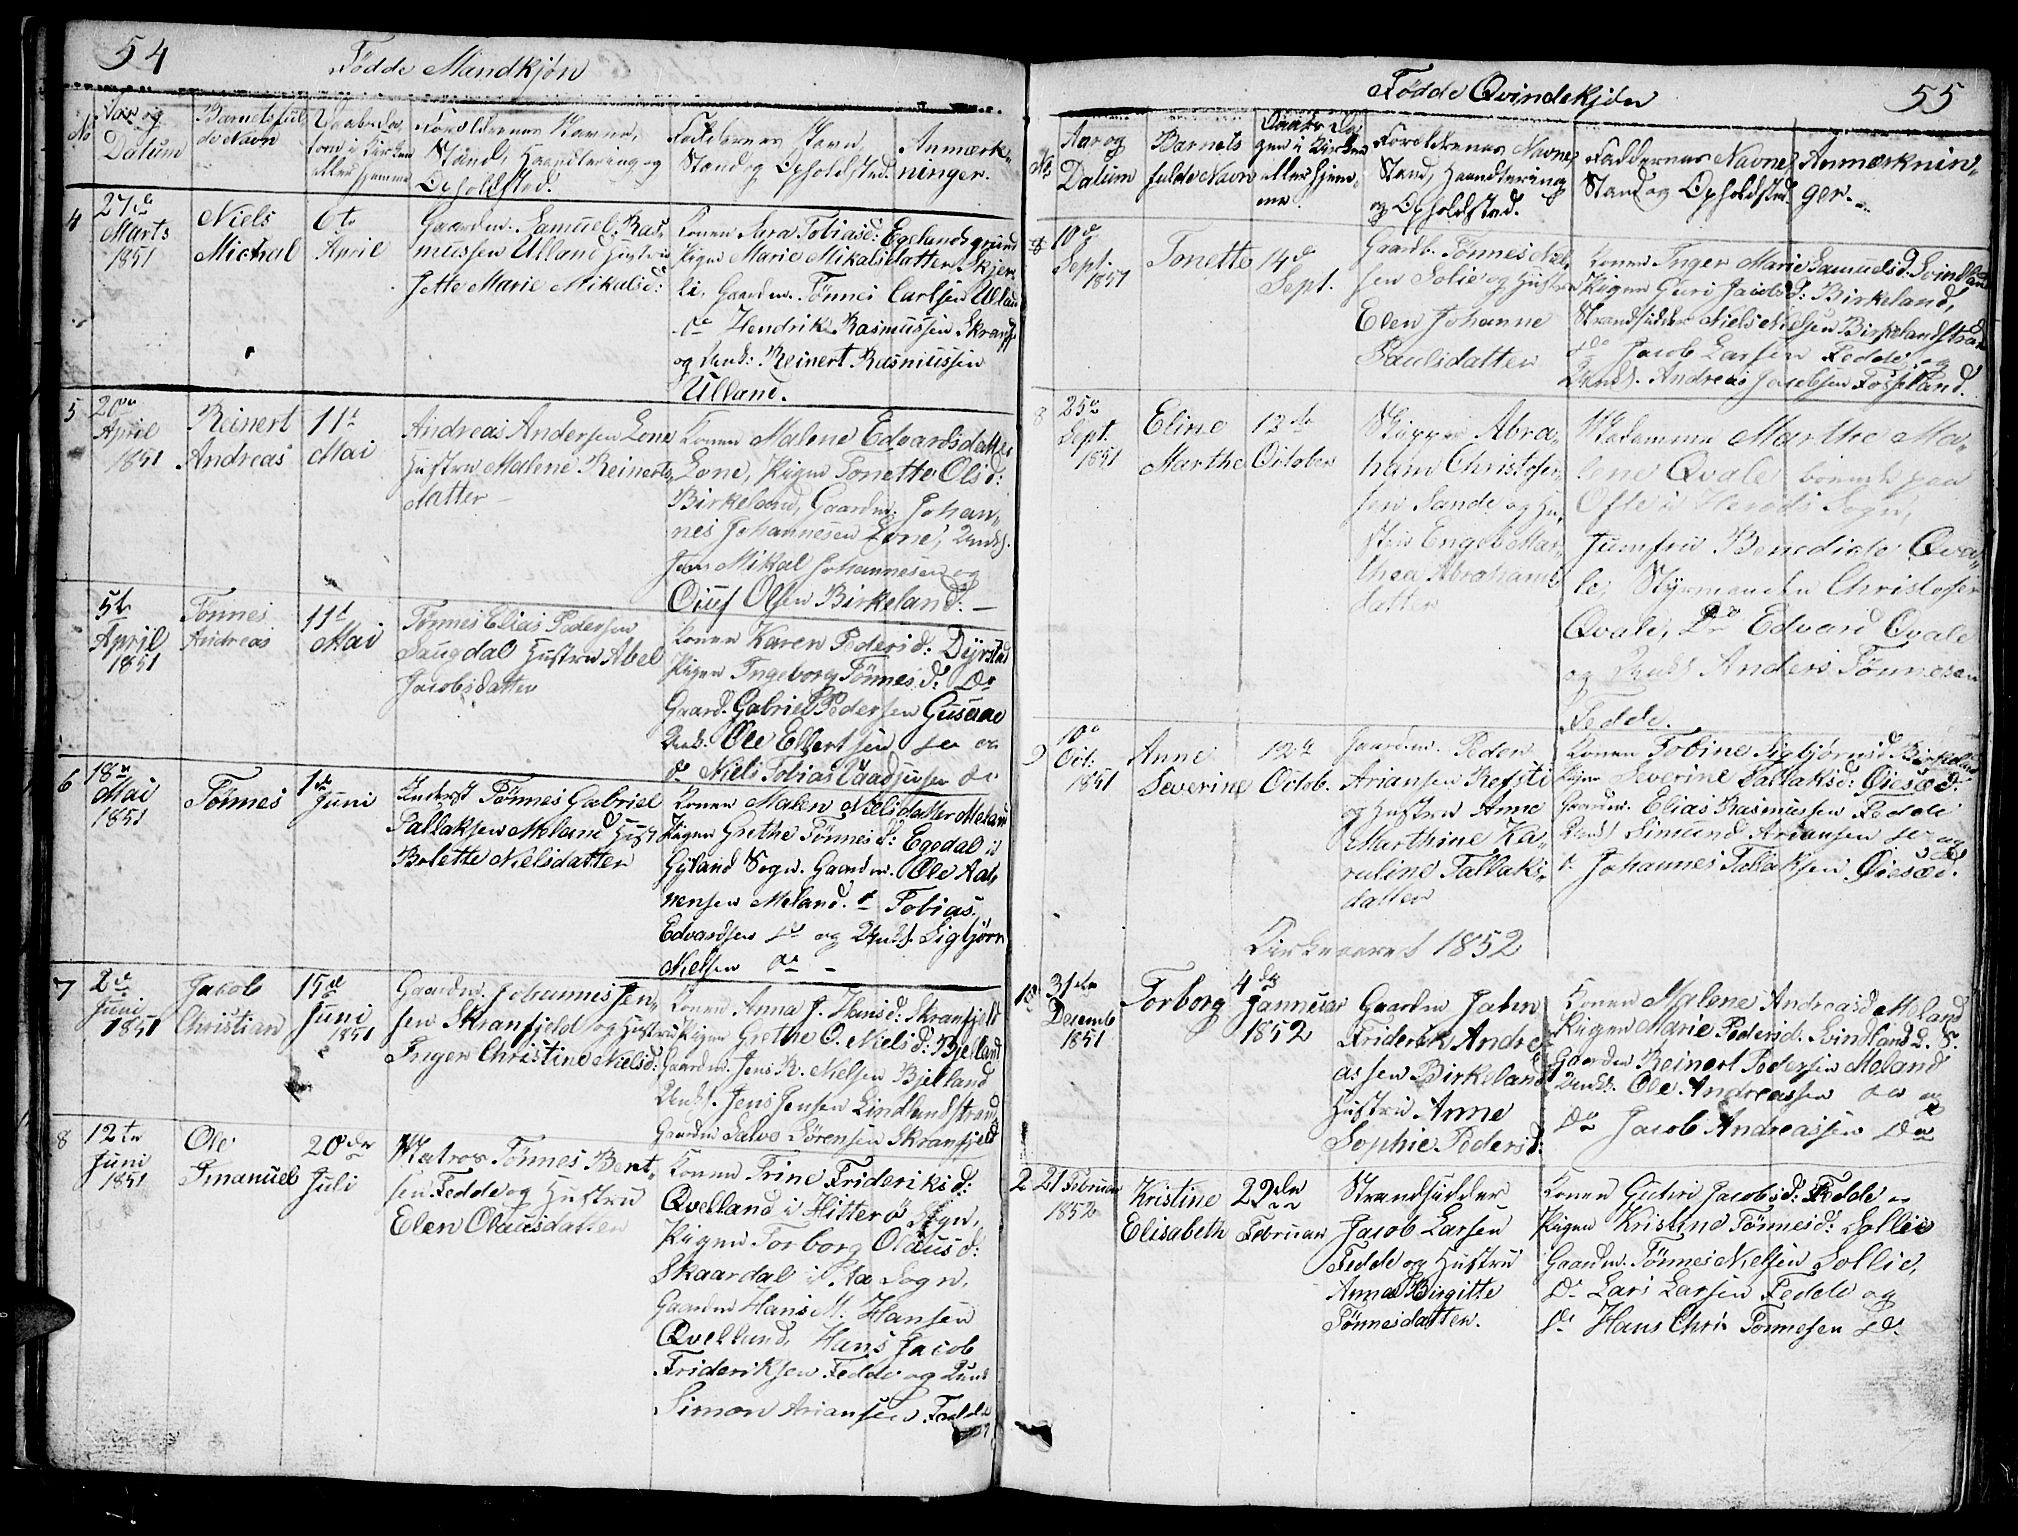 54
Fødde Mandkjøn
No
Aar og
Datum
Barnets ful
de Navn
Daabsda
gen i Kirken
eller hjemme
Foreldrenes Navne,
Stand, Haandtering og
Opholdsted.
Faddernes Navn,
Stand og Opholdsted.
Anmærk-
ninger.
4
27de
Marts
1851
Niels
Michal
6te
April
Gaardm. Samuel Ras,
mussen Ulland Hustru
Jette Marie Mikalsd:
Konen Sara Tobiasd: Egelandsgrund
Pigen Marie Mikalsdatter Skjer
li, Gaardm. Tønnes Carlsen Ulland
do Hendrik Rasmussen Skranf
og Unk: Reinert Rasmussen
Ulland.
5
20de
April
1851
Reinert
Andreas
11t
Mai
Andreas Andersen Lone
Hustru Malene Reinerts,
datter
Konen Malene Edvardsdatter
Lone, Pigen Tonette Olsd:
Birkeland, Gaardm. Johan,
nes Johannesen Lone, Unks.
Jens Mikal Johannesen og
Oluf Olsen Birkeland. —
5te
April
1851
Tønnes
Andreas
11t
Mai
Tønnes Elias Pedersen
Laugdal Hustru Abel
Jacobsdatter
Konen Karen Pedersd: Dyrstad
Pigen Ingeborg Tønnesd: Do
Gaard. Gabriel Pedersen Gusaae
Unk: Ole Ellertsen do og
do Niels Tobias do
6
18de
Mai
1851
Tønnes
1de
Juni
Inderst Tønnes Gabriel
Tallaksen Meland Hust
Bolette Nielsdatter
Konen Malen Nielsdatter Meland
Pigen Grethe Tønnesd: Egedal i
Gyland Sogn. Gaardm. Ole Aad,
nensen Meland. do Tobias
Edvardsen do og Unks. Sigbjørn
Nielsen do —
7
2de
Juni
1851
Jacob
Christian
15de
Juni
1851
Gaardm. Johannes Jen,
sen Skranfjeld og Hustru
Inger Christine Nielsd:
Konen Anna J. Hansd: Skranfjeld
Pigen Grethe O. Nielsd: Bjelland
Gaardm. Jens R. Nielsen Bjelland
Unks. Jens Jensen Lindlandstrand
Gaardm Salve Sørensen Skranfjeld
8
12te
Juni
1851
Ole
Emanuel
20de
Juli
Matros Tønnes Bent,
sen Fedde og Hustru
Elen Olausdatter
Konen Trine Frideriksd:
Qvelland i Hitterø Sogn,
Pigen Torborg Olausd:
Skaardal i Aa Sogn,
Gaardm Hans M. Hansen
Qvelland, Hans Jacob
Frideriksen Fedde og Unk
Simon Ariansen Fedde
55
Fødde Qvindekjøn
No
Aar og
Datum
Barnets
fulde Navn
Daabsda
gen i Kirken
eller hjem-
me.
Foreldrenes Navne,
Stand, Haandtering
og Opholdsted.
Faddernes Navne
Stand og Opholdsted.
Anmærknin-
ger.
10de
Sept.
1851
Tonette
14de
Sept.
Gaardb. Tønnes Niel
sen Solie og Hustru
Elen Johanne
Paulsdatter
Konen Inger Marie Samuelsd. Svindland
Pigen Guri Jacobsd: Birkeland,
Strandsidder Niels Nielsen Birkelandstrand
do Jacob Larsen Fedde, og
Unks. Andreas Jacobsen Fosseland.
8
25de
Sept.
1851
Eline
Marthe
12de
October
Skipper Abra-
ham Christofer,
sen Sande og Hu,
stru Engel Mar-
thea Abrahams
datter
Madamme Marthe Ma-
lene Qvale boende paa
Ofte i Herads Sogn,
Jumfru Benedicte Qva-
le, Styrmanden Christofer
Qvale, Do Edvard Qvale
og Unks Anders Tønnesen
Fedde.
9
10de
Oct.
1851
Anne
Severine
12te
Octob.
Gaardm. Peder
Ariansen Refsti
og Hustru Anne
Marthine Ka-
roline Tallaks-
datter
Konen Tobine Sigbjørnsd Birkeland
Pigen Severine Tallaksd: Øiesæd.
Gaardm. Elias Rasmussen Fedde
Unks Simund Ariansen do og
Johannes Tallaksen Øiesæd.
Kirkeaaret 1852
31te
Decemb
1851
Torborg
4de
Januar
1852
Gaardm Jahn
Friderik Andre
assen Birkeland
Hustru Anne
Sophie Pedersd:
Konen Malene Andreasd Meland
Pigen Marie Pedersd. Svindland L. S.
Gaardm Reinert Pedersen Meland
Unks. Ole Andreassen do og
Do Jacob Andreassen Do
2
21 Februar
1852
Kristine
Elisabeth
29de
Februar
Strandsidder
Jacob Larsen
Fedde og Hustru
Anna Birgitte
Tønnesdatter.
Konen Guhri Jacobsd: Fedde
Pigen Kristine Tønnesd: Sollie
Gaardm. Tønnes Nielsen Sollie,
Do Lars Larsen Fedde og
Do Hans Chri Tønnesen Do.